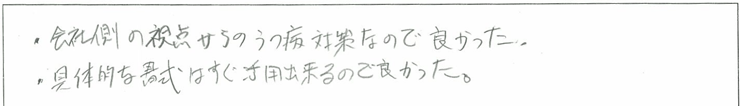 ・会社側の視点からのうつ病対策なので良かった。
・具体的な書式はすぐ活用出来るので良かった。